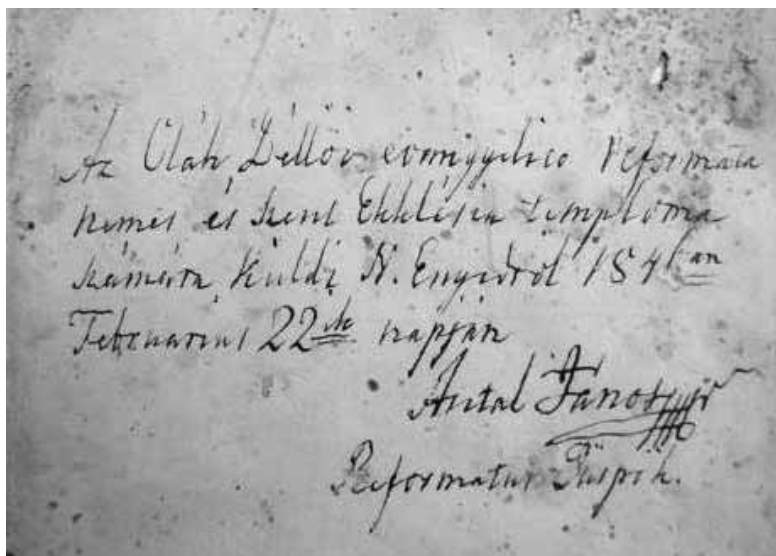 Az Oláh Dellői evangyelico reformata
nemes és szent Ekklésia temploma
számára, küldi N. Enyedről
Februarius 22ik napján
Antal János
Reformatus Püspök.